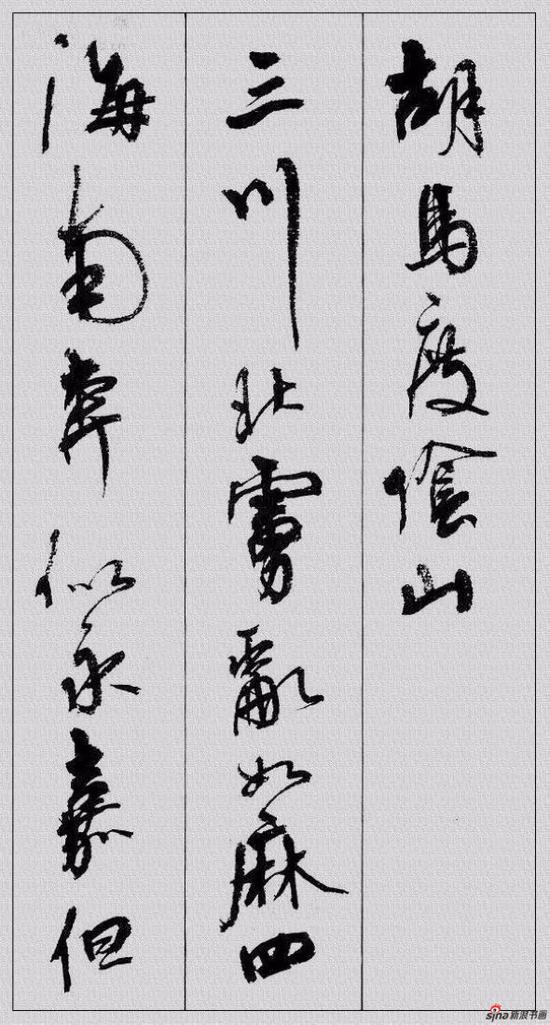 胡馬度陰山
三川北虜亂如麻四
海南奔似永嘉但
sina新浪书画